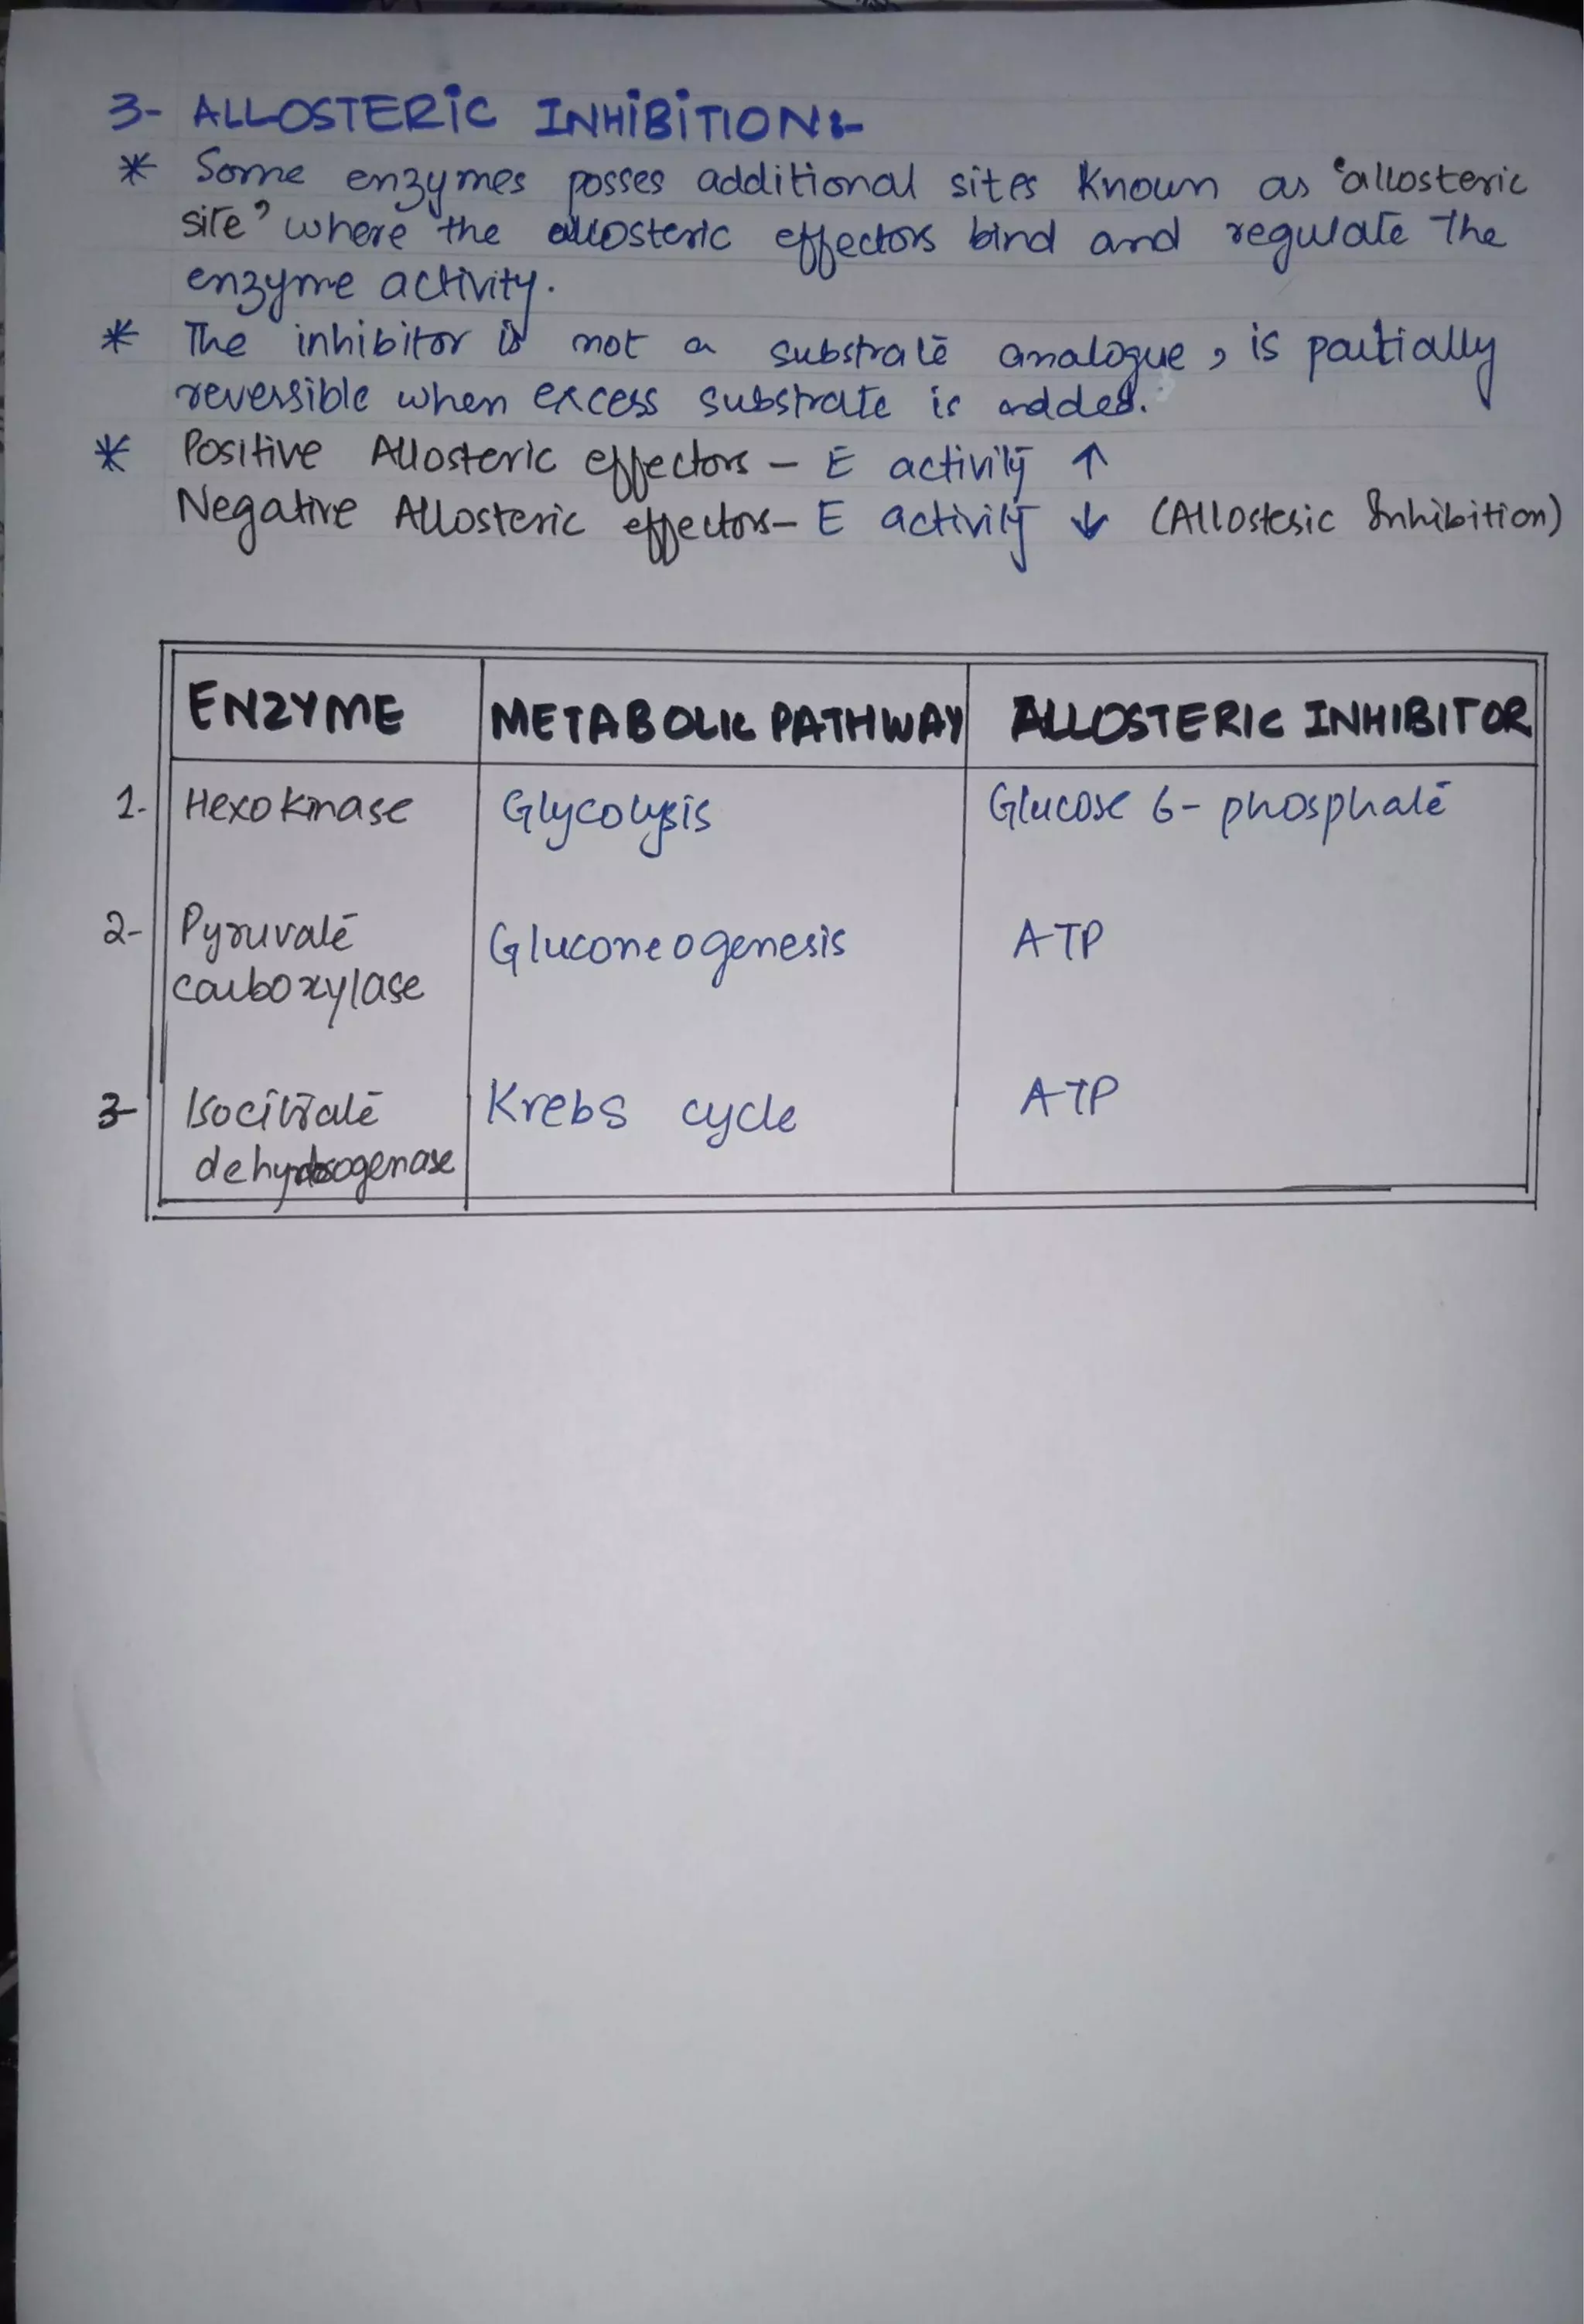 3- ALLOSTERIC INHIBITION:-
* Some enzymes posses additional sites Known as "allosteric
site" where the allosteric effectors bind and regulate the
enzyme activity.
* The inhibitor is not a substrate analogue, is partially
reversible when excess substrate is added.
* Positive Allosteric effectors - E activity ↑
Negative Allosteric effectors - E activity ↓ (Allosteric Inhibition)
ENZYME METABOLIC PATHWAY ALLOSTERIC INHIBITOR
1- Hexokinase Glycolysis Glucose 6-phosphate
2- Pyruvate Gluconeogenesis ATP
carboxylase
3- Isocitrate Krebs cycle ATP
dehydrogenase